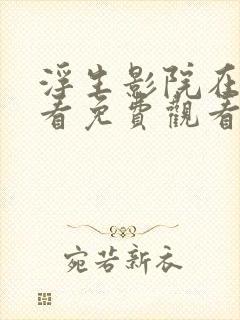 浮生影院在
看免費觀看
宛若新衣